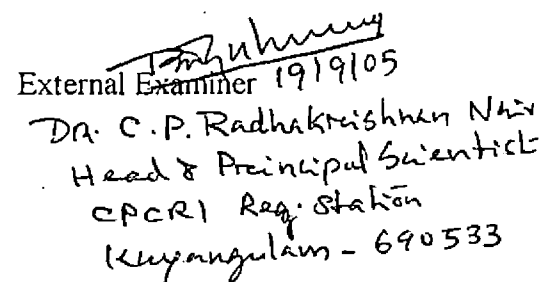 External Examiner 19/9/05
DR. C.P. Radhakrishnan Nair
Head & Principal Scientist
CPCRI Reg. Station
Kayangulam - 690533